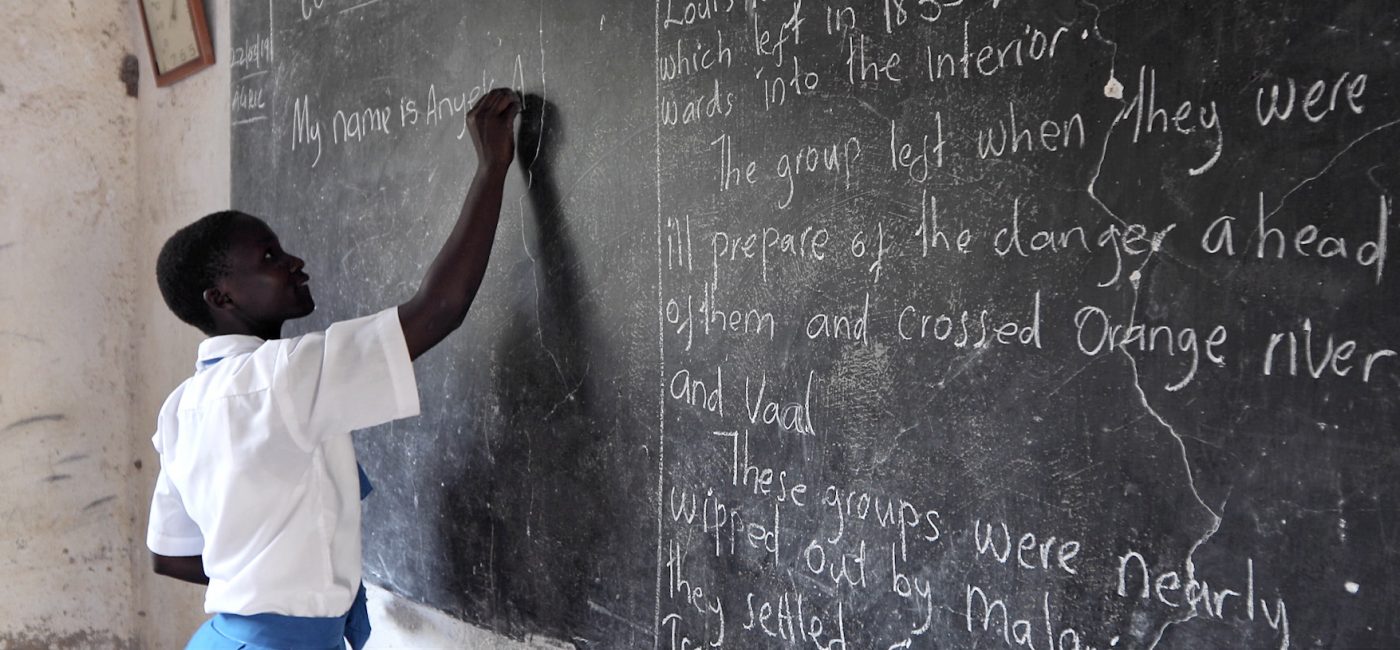 22/02/19
My name is
which left in
wards into the Interior.
The group left when they were
ill prepare of the danger ahead
of them and crossed Orange river
and Vaal
These groups were nearly
wipped out by
they settled